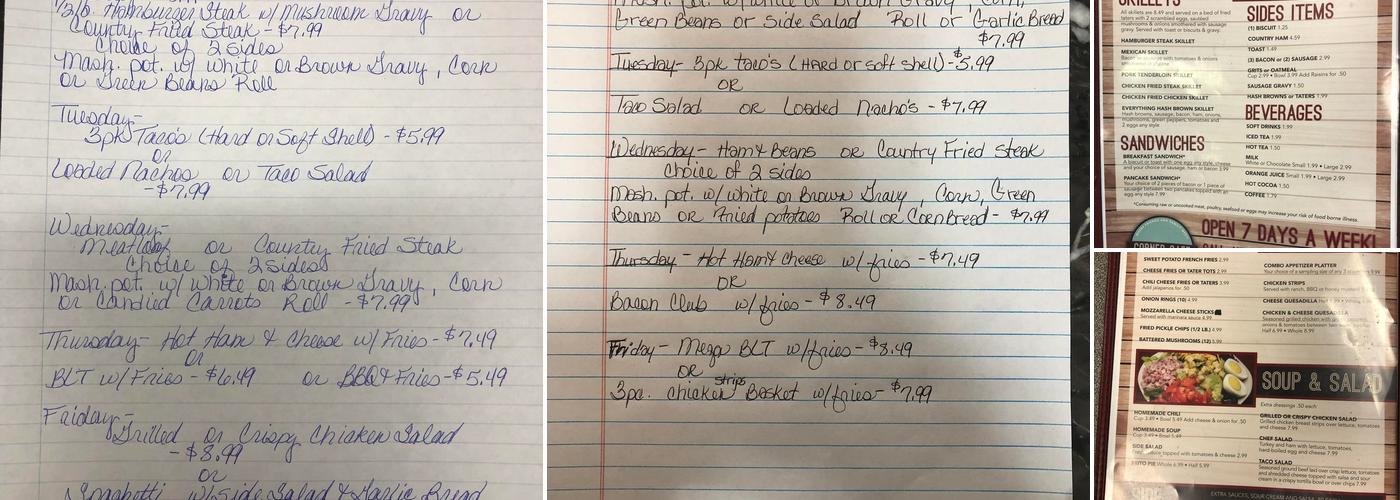 1/2 lb. Hamburger Steak w/ Mushroom Gravy or
Country Fried Steak - $7.99
Choice of 2 sides
Mash. pot. w/ white or Brown Gravy, Corn
or Green Beans Roll
Tuesday-
3pk Taco's (Hard or Soft Shell) - $5.99
or
Loaded Nachos or Taco Salad
- $7.99
Wednesday-
Meatloaf or Country Fried Steak
Choice of 2 sides
Mash. pot. w/ white or Brown Gravy, Corn
or Candied Carrots Roll - $7.99
Thursday- Hot Ham & Cheese w/ Fries - $7.49
or
BLT w/ Fries - $6.49 or BBQ & Fries - $5.49
Friday-
Grilled or Crispy Chicken Salad
- $8.99
or
Spaghetti w/ Side Salad & Garlic Bread
Mash. pot. w/ white or Brown Gravy, Corn,
Green Beans or Side Salad Roll or Garlic Bread
$7.99
Tuesday- 3pk taco's (Hard or soft shell) - $5.99
OR
Taco Salad OR Loaded Nacho's - $7.99
Wednesday- Ham & Beans OR Country Fried Steak
choice of 2 sides
Mash. pot. w/ white or Brown Gravy, Corn, Green
Beans or Fried potatoes Roll or CornBread - $7.99
Thursday- Hot Ham & Cheese w/ fries - $7.49
OR
Bacon Club w/ fries - $8.49
Friday- Mega BLT w/ fries - $8.49
OR
3pc. chicken strips Basket w/ fries - $7.99
SKILLETS
All skillets are 8.49 and served on a bed of fried
taters with 2 scrambled eggs, sautéed
mushrooms & onions smothered with sausage
gravy. Served with toast or biscuits & gravy.
HAMBURGER STEAK SKILLET
MEXICAN SKILLET
PORK TENDERLOIN SKILLET
CHICKEN FRIED STEAK SKILLET
CHICKEN FRIED CHICKEN SKILLET
EVERYTHING HASH BROWN SKILLET
Hash browns, sausage, bacon, ham, onions,
mushrooms, green peppers, tomatoes and
2 eggs any style
SANDWICHES
BREAKFAST SANDWICH*
A biscuit or toast with one egg any style, cheese
and your choice of sausage, ham or bacon
PANCAKE SANDWICH*
Your choice of 2 pieces of bacon or 1 piece of
sausage between two pancakes topped with an
egg any style 7.99
SIDES ITEMS
(1) BISCUIT 1.25
COUNTRY HAM 4.59
TOAST 1.49
(3) BACON or (2) SAUSAGE 2.99
GRITS or OATMEAL
Cup 2.99 • Bowl 3.99 Add Raisins for .50
SAUSAGE GRAVY 1.50
HASH BROWNS or TATERS 1.99
BEVERAGES
SOFT DRINKS 1.99
ICED TEA 1.99
HOT TEA 1.50
MILK
White or Chocolate Small 1.99 • Large 2.99
ORANGE JUICE Small 1.99 • Large 2.99
HOT COCOA 1.50
COFFEE 1.79
*Consuming raw or uncooked meat, poultry, seafood or eggs may increase your risk of food borne illness.
OPEN 7 DAYS A WEEK!
SWEET POTATO FRENCH FRIES 2.99
CHEESE FRIES OR TATER TOTS 2.99
CHILI CHEESE FRIES OR TATERS 3.99
Add jalapenos for .50
ONION RINGS (10) 4.99
MOZZARELLA CHEESE STICKS
Served with marinara sauce 4.99
FRIED PICKLE CHIPS (1/2 LB.) 4.99
BATTERED MUSHROOMS (12) 5.99
COMBO APPETIZER PLATTER
Your choice of a sampling size of any 3
CHICKEN STRIPS
Served with ranch, BBQ or honey mustard
CHEESE QUESADILLA
CHICKEN & CHEESE QUESADILLA
Seasoned grilled chicken with
onions & tomatoes between two
Half 6.99 • Whole 8.99
SOUP & SALAD
Extra dressings .50 each
HOMEMADE CHILI
Cup 3.49 • Bowl 5.49 Add cheese & onion for .50
HOMEMADE SOUP
Cup 3.49 • Bowl 5.49
SIDE SALAD
topped with tomatoes & cheese 2.99
FRITO PIE Whole 6.99 • Half 5.99
GRILLED OR CRISPY CHICKEN SALAD
Grilled chicken breast strips over lettuce, tomatoes
and cheese 7.99
CHEF SALAD
Turkey and ham with lettuce, tomatoes,
hard-boiled egg and cheese 7.99
TACO SALAD
Seasoned ground beef laid over crisp lettuce, tomatoes,
and cheese topped with salsa and sour
cream in a crispy tortilla bowl or over chips 7.99